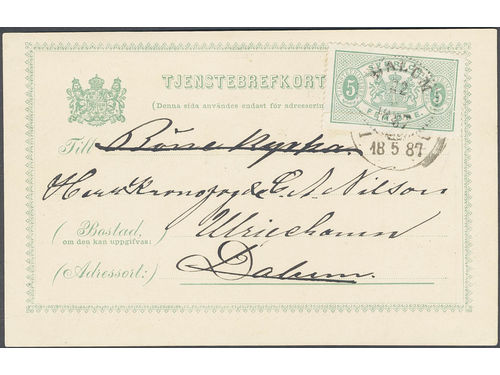 TJENSTEBREFKORT
(Denna sida användes endast för adressering
5 5
18 5 87
Till
Herr Kronofogde C. A. Nilson
(Bostad,
om den kan uppgifvas:) Ulricehamn
(Adressort:) Dalum.